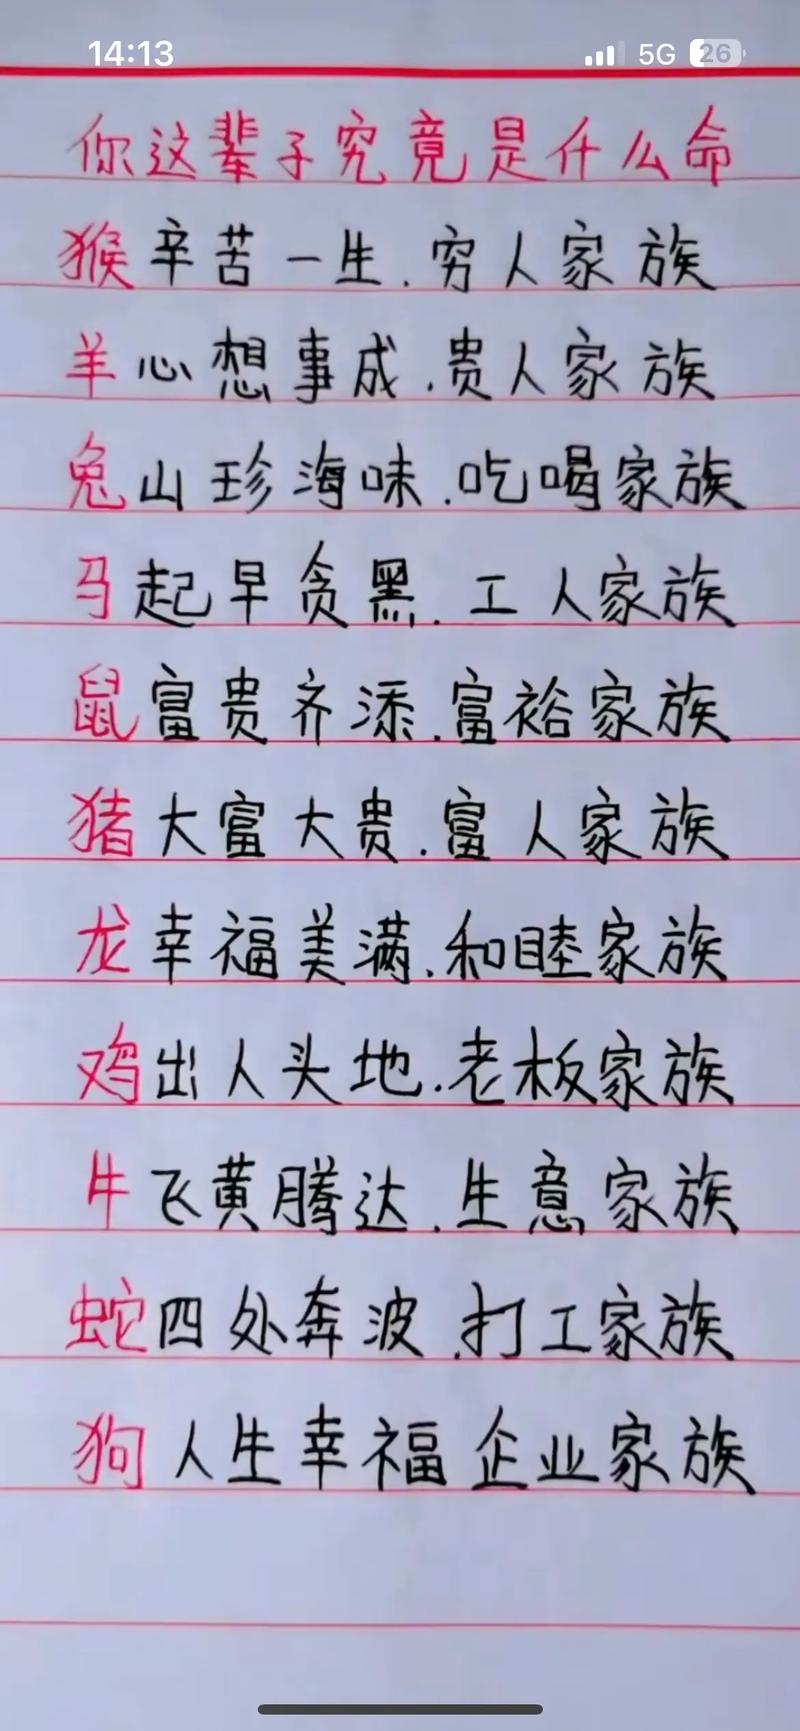 14:13 5G 26
你这辈子究竟是什么命
猴辛苦一生.穷人家族
羊心想事成.贵人家族
兔山珍海味.吃喝家族
马起早贪黑.工人家族
鼠富贵齐添.富裕家族
猪大富大贵.富人家族
龙幸福美满.和睦家族
鸡出人头地.老板家族
牛飞黄腾达.生意家族
蛇四处奔波.打工家族
狗人生幸福企业家族